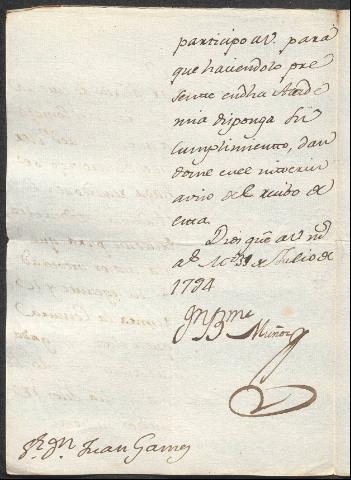 participo a V. para
que haviendolo pre
sente en dha Acade
mia disponga su
cumplimiento, dan
dome en el interin
aviso del recibo de
esta.
Dios gue a V. m.s
a.s M.d 31 de Julio de
1794
Jn Bme
Muñoz
Sr. Dn. Juan Gamez